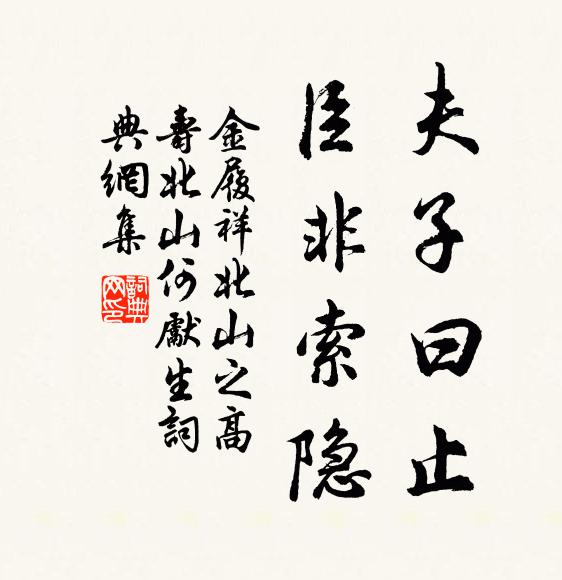 夫子曰止
臣非索隐
金履祥北山之高
壽北山何獻生詞
典網集
詞典网印